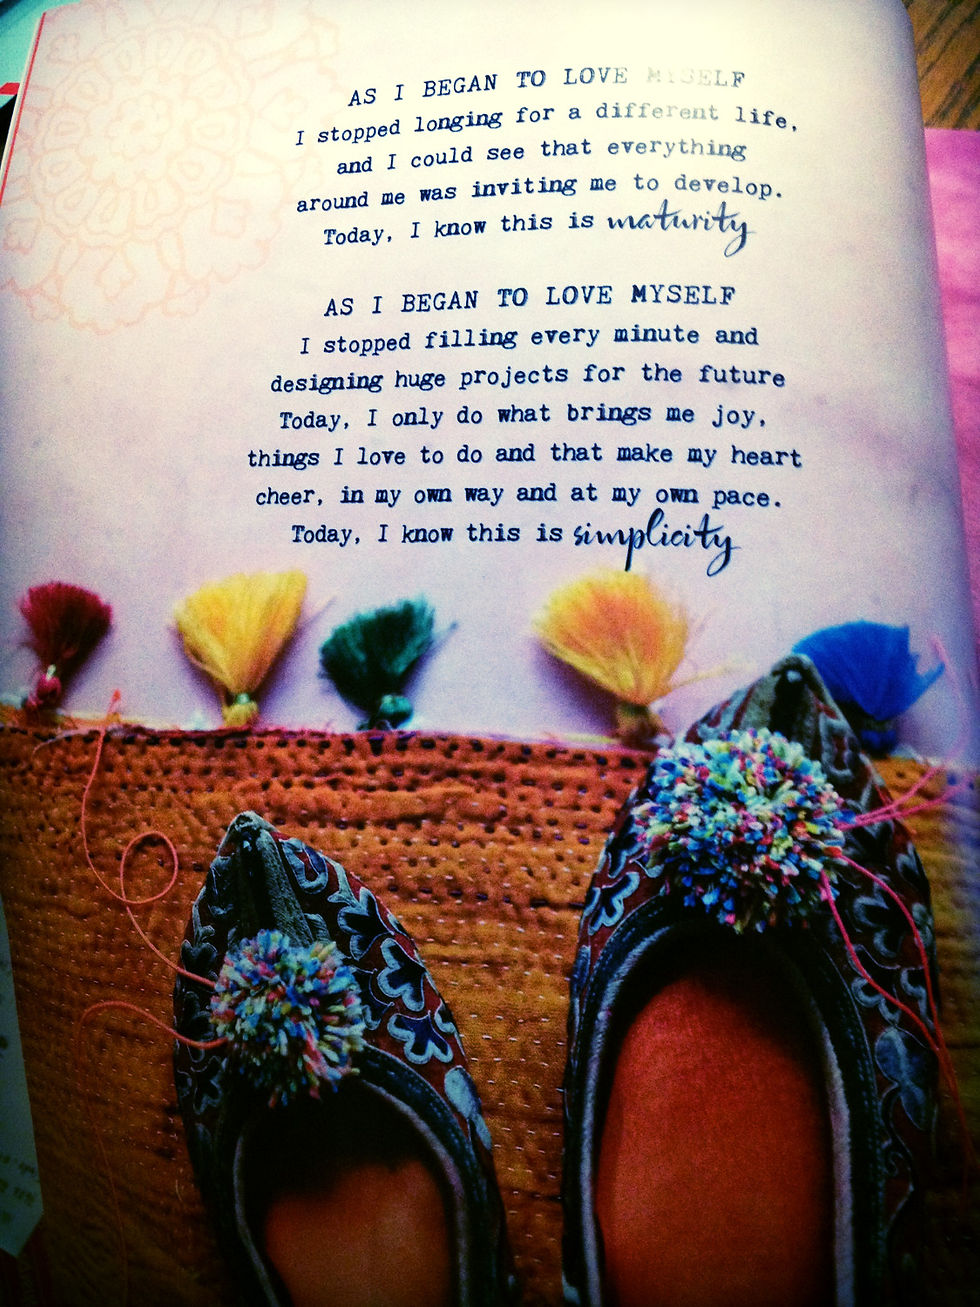 AS I BEGAN TO LOVE MYSELF
I stopped longing for a different life,
and I could see that everything
around me was inviting me to develop.
Today, I know this is maturity
AS I BEGAN TO LOVE MYSELF
I stopped filling every minute and
designing huge projects for the future
Today, I only do what brings me joy,
things I love to do and that make my heart
cheer, in my own way and at my own pace.
Today, I know this is simplicity